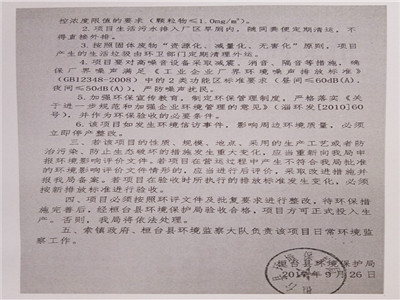 控浓度限值的要求（颗粒物≤1.0mg/m³）。
2.项目生活污水排入厂区旱厕内，随同粪便定期清运，不
得直接外排。
3.按照固体废物"资源化、减量化、无害化"原则，项目
产生的生活垃圾由环卫部门定期清理外运。
4.项目要对高噪音设备采取减震、消音、隔音等措施，确
保厂界噪声满足《工业企业厂界环境噪声排放标准》
（GB12348-2008）中的2类功能区标准要求（昼间≤60dB(A)、
夜间≤50dB(A)），严防噪声扰民。
5.加强环保宣传教育，制定环保管理制度，严格落实《关
于进一步规范和加强企业环境管理的意见》（淄环发[2010]60
号），并作为环保验收的必要条件。
6.该项目如发生环境信访事件，影响周边环境质量，必须
立即停产整改。
三、若该项目的性质、规模、地点、采用的生产工艺或者防
治污染、防止生态破坏的措施发生重大变化，应当重新向我局申
报环境影响评价文件。若项目在营运过程中产生不符合我局批准
的环境影响评价文件情形的，应当进行后评价，采取改进措施并
报我局备案。若项目在验收时所执行的排放标准发生变化，必须
按新排放标准进行验收。
四、项目必须按照环评文件及批复要求进行整改，待环保措
施完善后，经桓台县环境保护局验收合格，项目方可正式投入生
产。否则，我局将依法处理。
五、索镇政府、桓台县环境监察大队负责该项目日常环境监
察工作。
桓台县环境保护局
2017年9月26日